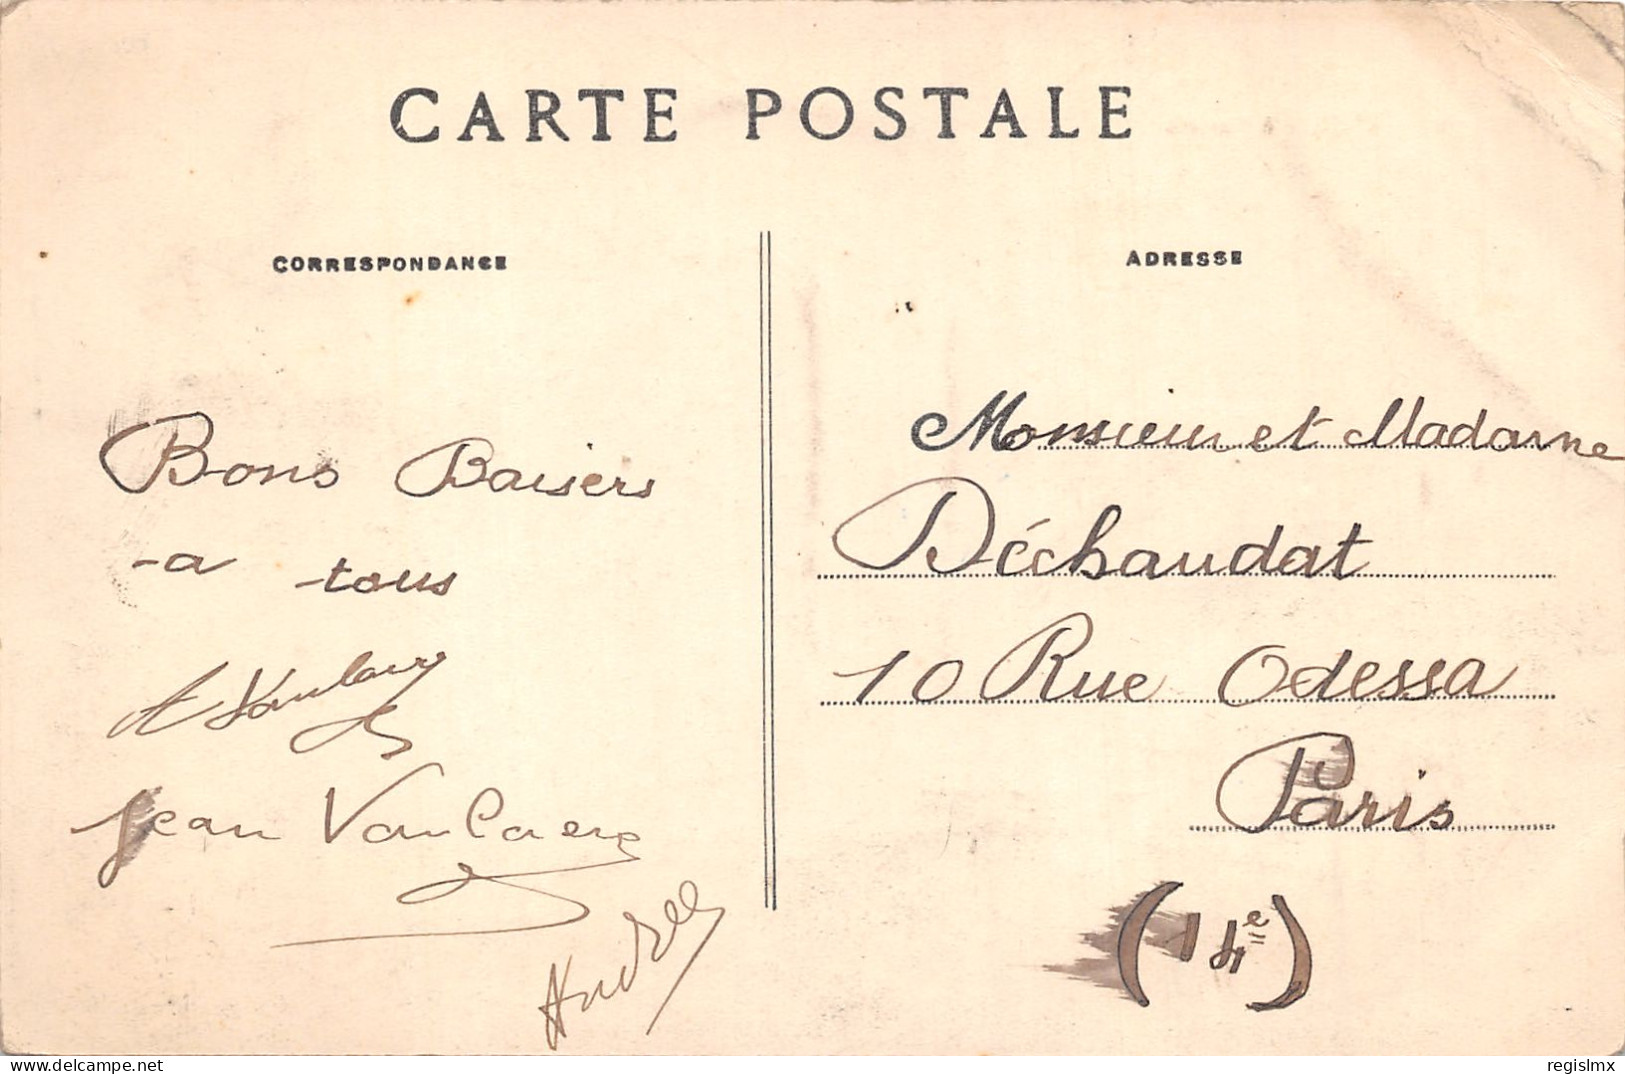 CARTE POSTALE
CORRESPONDANCE
Bons Baisers
a tous
Jean
ADRESSE
Monsieur et Madame
Déchaudat
10 Rue Odessa
Paris
(14e)
regislmx